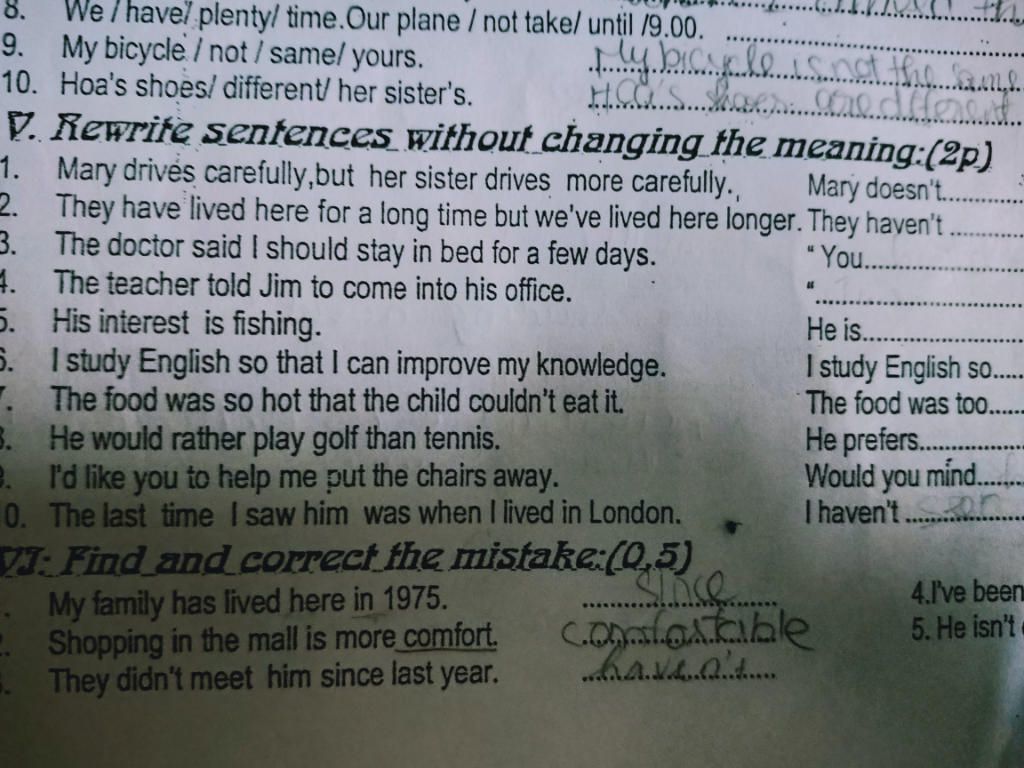 8. We / have/ plenty/ time.Our plane / not take/ until /9.00. ........
9. My bicycle / not / same/ yours. My bicycle is not the same
10. Hoa's shoes/ different/ her sister's. Hoa's shoes are different
V. Rewrite sentences without changing the meaning:(2p)
1. Mary drives carefully,but her sister drives more carefully. Mary doesn't............
2. They have lived here for a long time but we've lived here longer. They haven't ............
3. The doctor said I should stay in bed for a few days. “ You............
4. The teacher told Jim to come into his office. “............
5. His interest is fishing. He is............
6. I study English so that I can improve my knowledge. I study English so.....
7. The food was so hot that the child couldn't eat it. The food was too......
8. He would rather play golf than tennis. He prefers............
9. I'd like you to help me put the chairs away. Would you mind.......
10. The last time I saw him was when I lived in London. I haven't seen
VI: Find and correct the mistake:(0,5)
1. My family has lived here in 1975. since 4.I've been
2. Shopping in the mall is more comfort. comfostakible 5. He isn't
3. They didn't meet him since last year. haven't